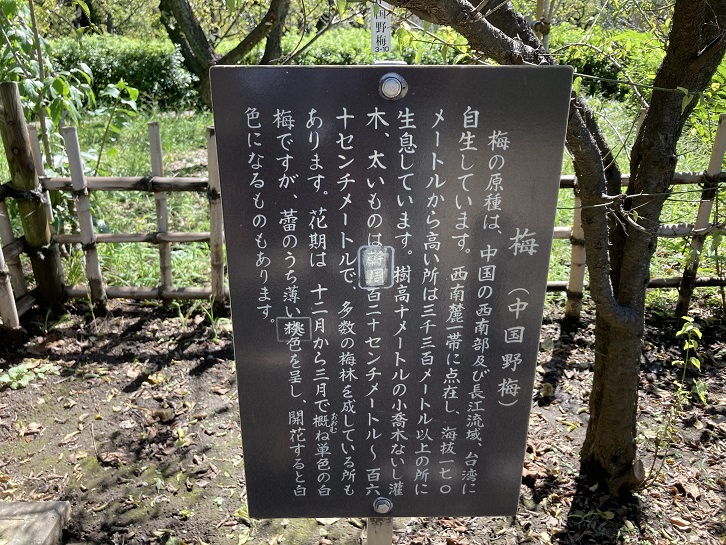 中国野梅
梅（中国野梅）
梅の原種は、中国の西南部及び長江流域、台湾に
自生しています。西南麓一帯に点在し、海抜一七〇
メートルから高い所は三千三百メートル以上の所に
生息しています。樹高十メートルの小喬木ないし灌
木、太いものは幹囲百二十センチメートル〜百六
十センチメートルで、多数の梅林を成している所も
あります。花期は十二月から三月で概ね単色の白
おおむ
梅ですが、蕾のうち薄い桃色を呈し、開花すると白
色になるものもあります。